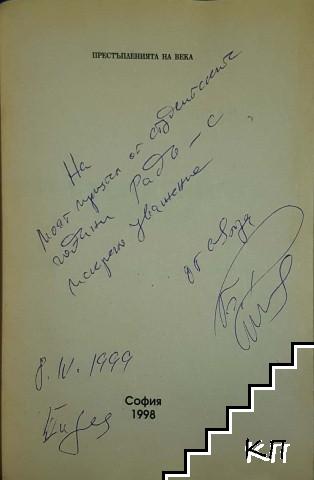 ПРЕСТЪПЛЕНИЯТА НА ВЕКА
На
моят приятел от студентските
години Радъ - с
искрено уважение
от автора
8.IV.1999
София
1998
КП